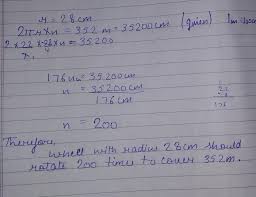 r = 28 cm
2πr×n = 352 m = 35200 cm (given) 1m = 100cm
2 × 22 × 28 × n = 35200
7
4
176 n = 35200 cm
n = 35200 cm
176 cm
n = 200
Therefore,
wheel with radius 28 cm should
rotate 200 times to cover 352 m.